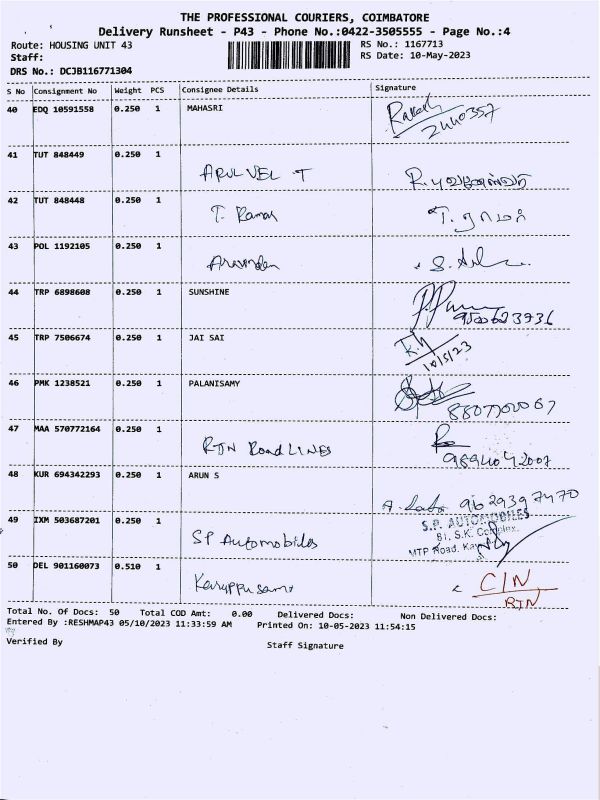 THE PROFESSIONAL COURIERS, COIMBATORE
Delivery Runsheet - P43 - Phone No.:0422-3505555 - Page No.:4
Route: HOUSING UNIT 43 RS No.: 1167713
Staff: RS Date: 10-May-2023
DRS No.: DCJB116771304
S No Consignment No Weight PCS Consignee Details Signature
40 EDQ 10591558 0.250 1 MAHASRI Rakesh
2440357
41 TUT 848449 0.250 1 ARUL VEL T
42 TUT 848448 0.250 1 T. Raman T. ராமர்
43 POL 1192105 0.250 1 Aravinden
44 TRP 6898608 0.250 1 SUNSHINE
45 TRP 7506674 0.250 1 JAI SAI
10/5/23
46 PMK 1238521 0.250 1 PALANISAMY
47 MAA 570772164 0.250 1 RTN Road LINES
9894042007
48 KUR 694342293 0.250 1 ARUN S
9629397470
49 IXM 503687201 0.250 1 SP Automobiles S.P. AUTOMOBILES
81, S.K. Complex,
MTP Road,
50 DEL 901160073 0.510 1 Karuppusami C/N
RTN
Total No. Of Docs: 50 Total COD Amt: 0.00 Delivered Docs: Non Delivered Docs:
Entered By :RESHMAP43 05/10/2023 11:33:59 AM Printed On: 10-05-2023 11:54:15
Verified By Staff Signature